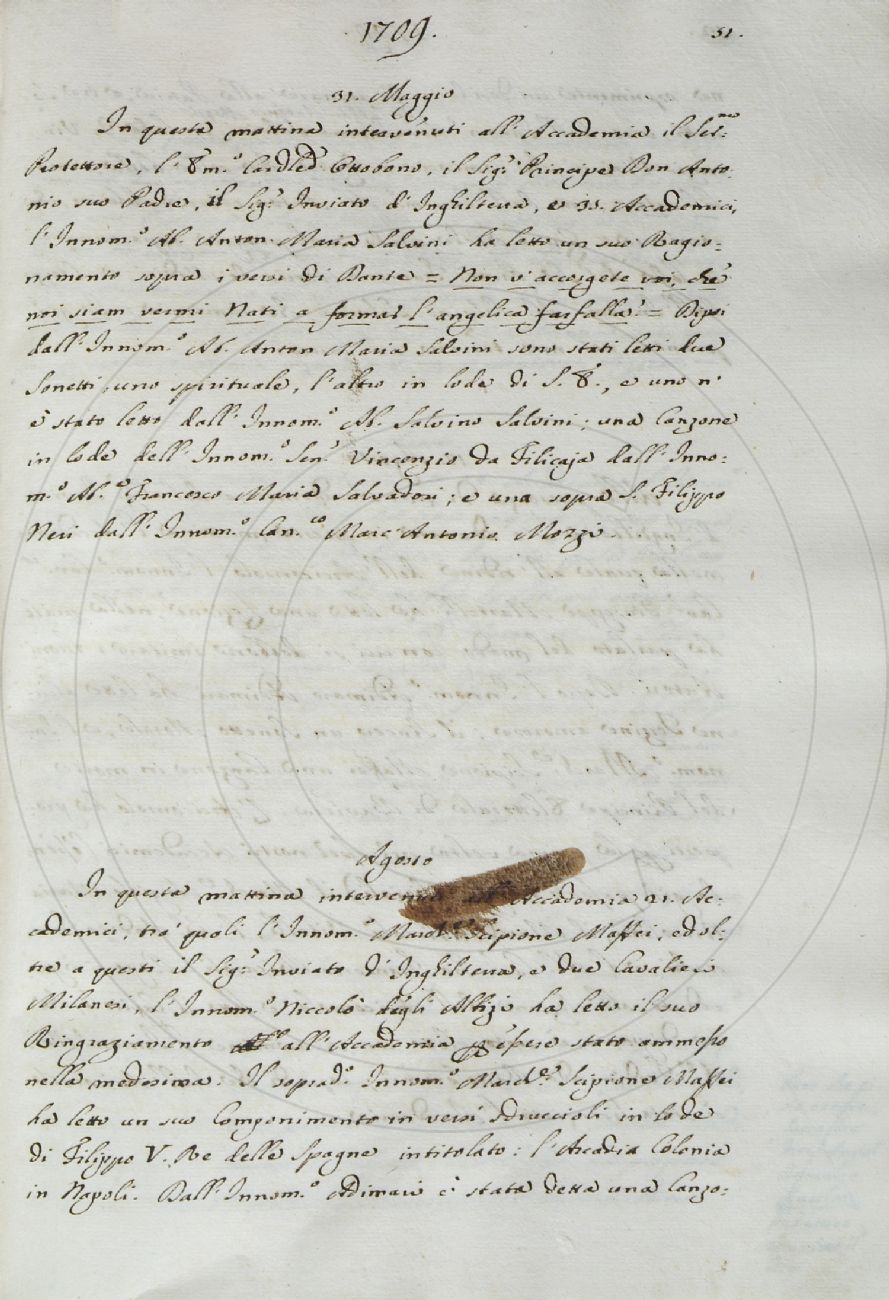 1709.
51.
31. Maggio
In questa mattina intervenuti all'Accademia il Ser:mo
Protettore, l'Em.o Cardle Ottobono, il Sig.r Principe Don Anto:
nio suo Padre, il Sig.r Inviato d'Inghilterra, e 35. Accademici,
l'Innom.o Ab. Anton Maria Salvini ha letto un suo Ragio:
namento sopra i versi di Dante = Non v'accorgete voi, che
noi siam vermi Nati a formar l'angelica farfalla? = Dipoi
dall'Innom.o Ab. Anton Maria Salvini sono stati letti due
Sonetti, uno spirituale, l'altro in lode di S. E., e uno n'
è stato letto dall'Innom.o Ab. Salvino Salvini; una Canzone
in lode dell'Innom.o Sen.r Vincenzio da Filicaja dall'Inno:
m.o Ab.e Francesco Maria Salvadori; e una sopra S. Filippo
Neri dall'Innom.o Can.co Marc'Antonio Mozzi.
Agosto
In questa mattina intervenuti all'Accademia 21. Ac:
cademici, tra' quali l'Innom.o March.se Scipione Maffei; ed ol:
tre a questi il Sig.r Inviato d'Inghilterra, e due Cavalieri
Milanesi, l'Innom.o Niccolò degli Albizi ha letto il suo
Ringraziamento all'Accademia p essere stato ammesso
nella medesima. Il soprad.o Innom.o March.se Scipione Maffei
ha letto un suo Componimento in versi sdruccioli in lode
di Filippo V. Re delle Spagne intitolato: l'Arcadia Colonia
in Napoli. Dall'Innom.o Adimari è stata detta una Canzo: